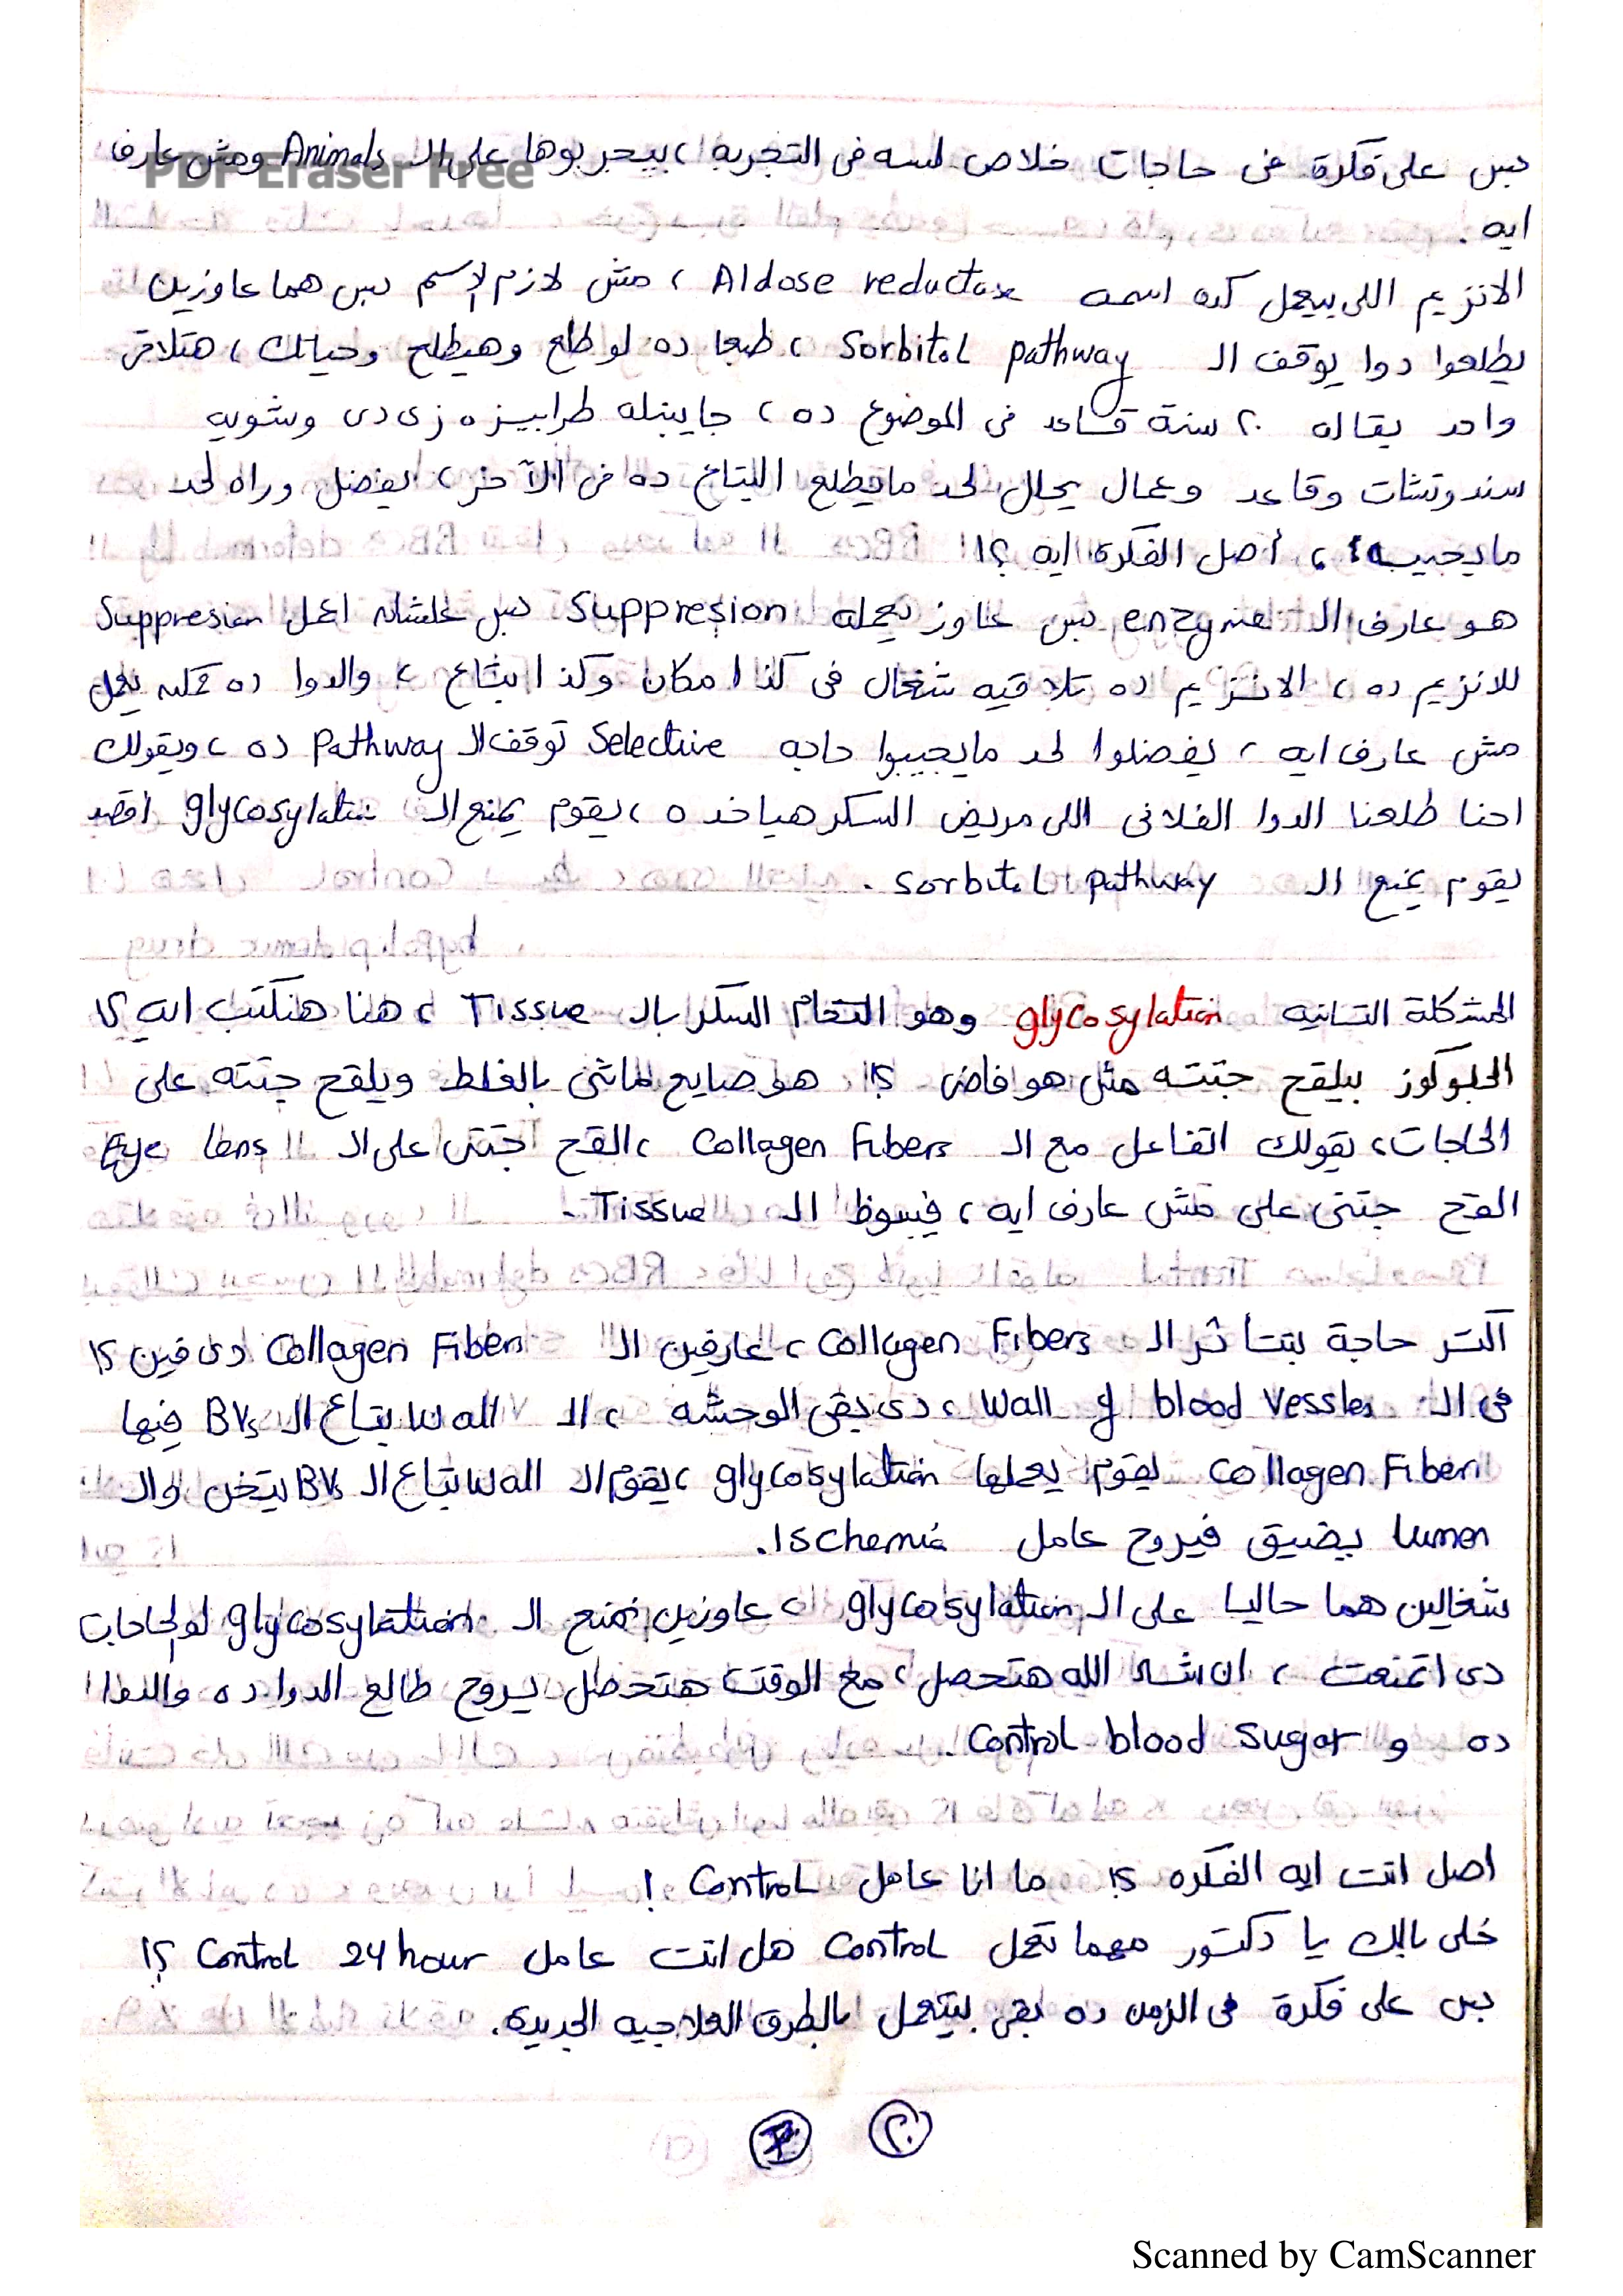 بس على فكرة فى حاجات خلاص لسه فى التجربة ، بيجربوها على الـ Animals ومش عارف
PDF Eraser Free
ايه .
الانزيم اللى بيعمل كده اسمه Aldose reductase ، مش لازم الإسم بس هما عاوزين
يطلعوا دوا يوقف الـ Sorbitol pathway ، طبعا ده لو طلع وهيطلع وحياتك ، هتلاقى
واحد بقاله ٢٠ سنة قاعد فى الموضوع ده ، جايبنله طرابيزه زى دى وشوية
سندوتشات وقاعد وعمال يحلل لحد مايطلع البتاع ده فى الآخر ، يفضل وراه لحد
مايجيبه ، أصل الفكرة ايه ؟!
هو عارف الـ enzyme بس عاوز يعمله Suppresion بس علشان اعمل Suppresion
للانزيم ده ، الانزيم ده تلاقيه شغال فى كذا مكان وكذا بتاع ، والدوا ده ممكن يعمل
مش عارف ايه ، يفضلوا لحد مايجيبوا حاجه Selective توقف الـ Pathway ده ، ويقولك
احنا طلعنا الدوا الفلانى اللى مريض السكر هياخده ، يقوم يمنع الـ glycosylation اقصد
يقوم يمنع الـ Sorbitol pathway .
المشكلة التانيه glycosylation وهو التحام السكر بالـ Tissue ، هنا هنكتب ايه ؟!
الجلوكوز بيلقح جتته مش هو فاضى ؟! هو صايع ماشى بالغلط ويلقح جتته على
الحاجات ، يقولك اتفاعل مع الـ Collagen Fibers ، القح جتتى على الـ Eye lens
القح جتتى على مش عارف ايه ، فيبوظ الـ Tissue .
اكتر حاجة بتتأثر الـ Collagen Fibers ، عارفين الـ Collagen Fibers دى فين ؟!
فى الـ Wall of blood Vessles ، دى بقى الوحشه ، الـ Wall بتاع الـ BVs فيها
Collagen Fibers يقوم يعملها glycosylation ، يقوم الـ Wall بتاع الـ BVs يتخن والـ
lumen يضيق فيروح عامل Ischemia.
شغالين هما حاليا على الـ glycosylation عاوزين نمنع الـ glycosylation لو الحاجات
دى اتمنعت ، ان شاء الله هتحصل ، مع الوقت هتحصل يروح طالع الدوا ده والدوا
ده و Control blood sugar .
اصل انت ايه الفكره ؟! ما انا عامل Control !
خلى بالك يا دكتور مهما تعمل Control هل انت عامل Control 24 hour ؟!
بس على فكرة فى الزمن ده بقى بيتعمل بالطرق العلاجيه الجديدة .
٢٠
Scanned by CamScanner